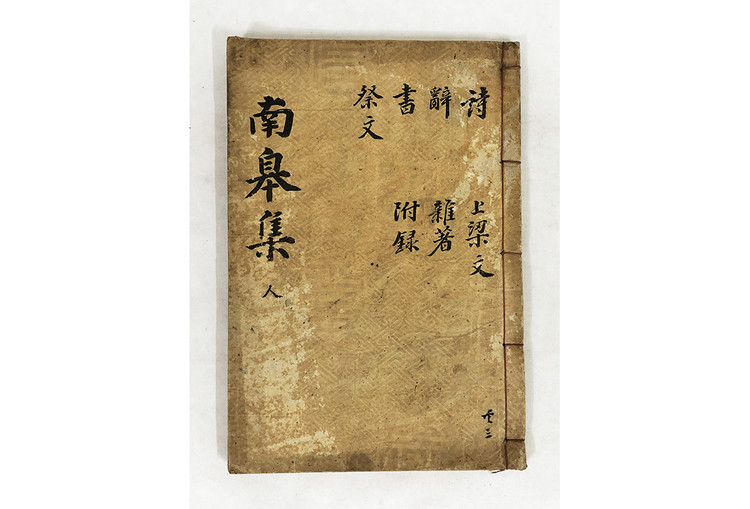 詩 上梁文
辭 雜著
書 附錄
祭文
南皐集 人
共三